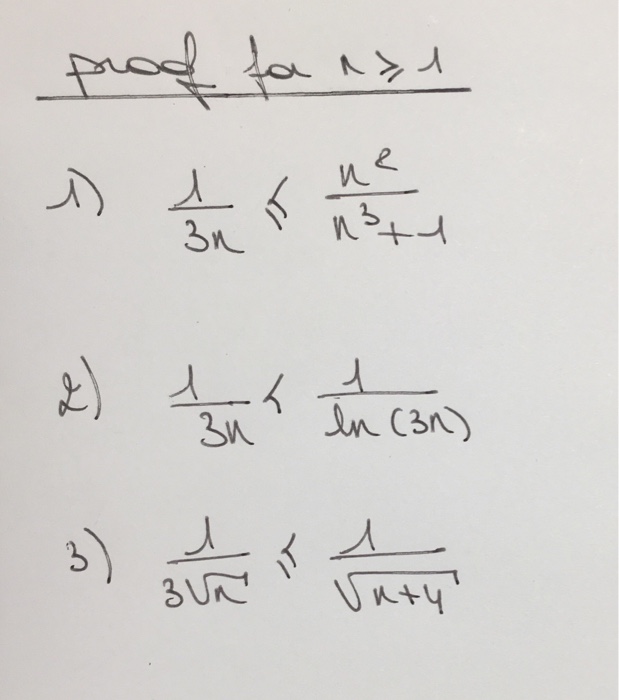 proof for n ≥ 1
1) 1/3n ≤ n²/n³+1
2) 1/3n < 1/ln(3n)
3) 1/3√n ≤ 1/√n+4